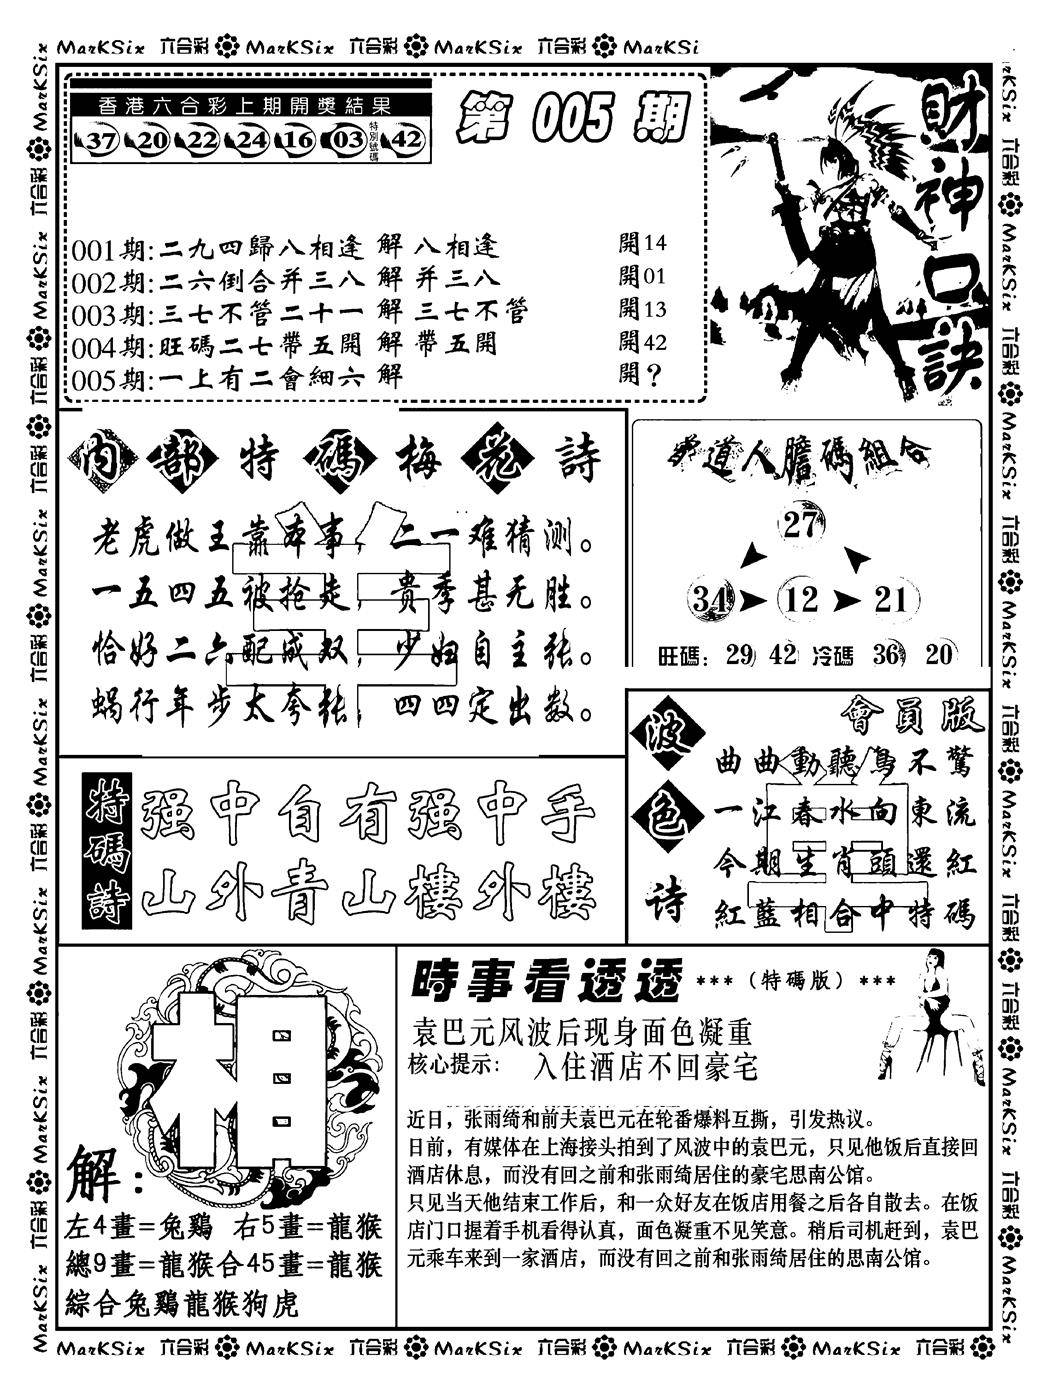 MarKSix 六合彩 MarKSix 六合彩 MarKSix 六合彩 MarKSi
香港六合彩上期開獎結果
37 20 22 24 16 03 特別號碼 42
第 005 期
財神口訣
001期:二九四歸八相逢 解 八相逢 開14
002期:二六倒合并三八 解 并三八 開01
003期:三七不管二十一 解 三七不管 開13
004期:旺碼二七帶五開 解 帶五開 開42
005期:一上有二會細六 解 開?
内部特碼梅花詩
老虎做王靠本事，二一难猜测。
一五四五被抢走，贵季甚无胜。
恰好二六配成双，少妇自主张。
蜗行年步太夸张，四四定出数。
道人膽碼組合
27
34 12 21
旺碼：29 42 冷碼 36 20
特碼詩
强中自有强中手
山外青山樓外樓
波色诗
會員版
曲曲動聽鳥不驚
一江春水向東流
今期生肖頭還紅
紅藍相合中特碼
相
解：
左4畫=兔鷄 右5畫=龍猴
總9畫=龍猴合45畫=龍猴
綜合兔鷄龍猴狗虎
時事看透透 ***（特碼版）***
袁巴元风波后现身面色凝重
核心提示: 入住酒店不回豪宅
近日，张雨绮和前夫袁巴元在轮番爆料互撕，引发热议。
日前，有媒体在上海接头拍到了风波中的袁巴元，只见他饭后直接回
酒店休息，而没有回之前和张雨绮居住的豪宅思南公馆。
只见当天他结束工作后，和一众好友在饭店用餐之后各自散去。在饭
店门口握着手机看得认真，面色凝重不见笑意。稍后司机赶到，袁巴
元乘车来到一家酒店，而没有回之前和张雨绮居住的思南公馆。
MarKSix 六合彩 MarKSix 六合彩 MarKSix 六合彩 MarKSix 六合彩 MarKSix 六合彩